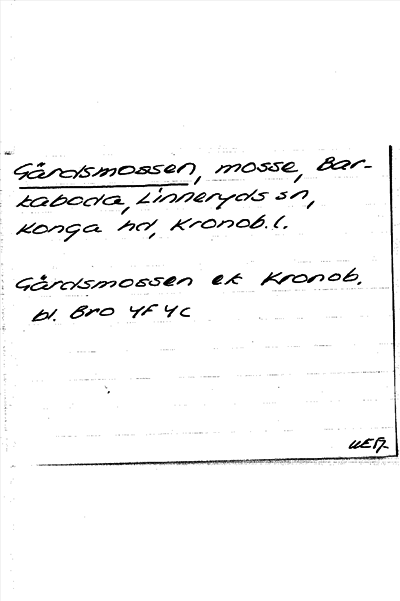 Gårdsmossen, mosse, Bar-
kaboda, Linneryds sn,
Konga hd, Kronob. l.
Gårdsmossen ek Kronob.
bl. Bro 4f 4c